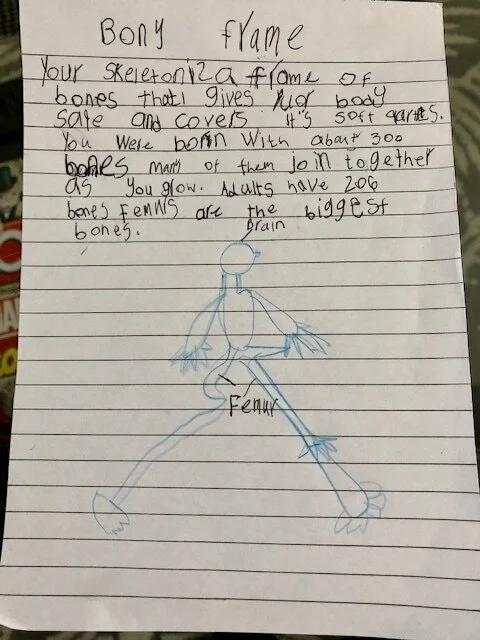 Bony frame
Your skeleton iz a frame of
bones that gives your body
safe and covers it's soft parts.
You were born with about 300
bones many of them join together
as you glow. Adults have 206
bones Femurs are the biggest
bones.
brain
Femur